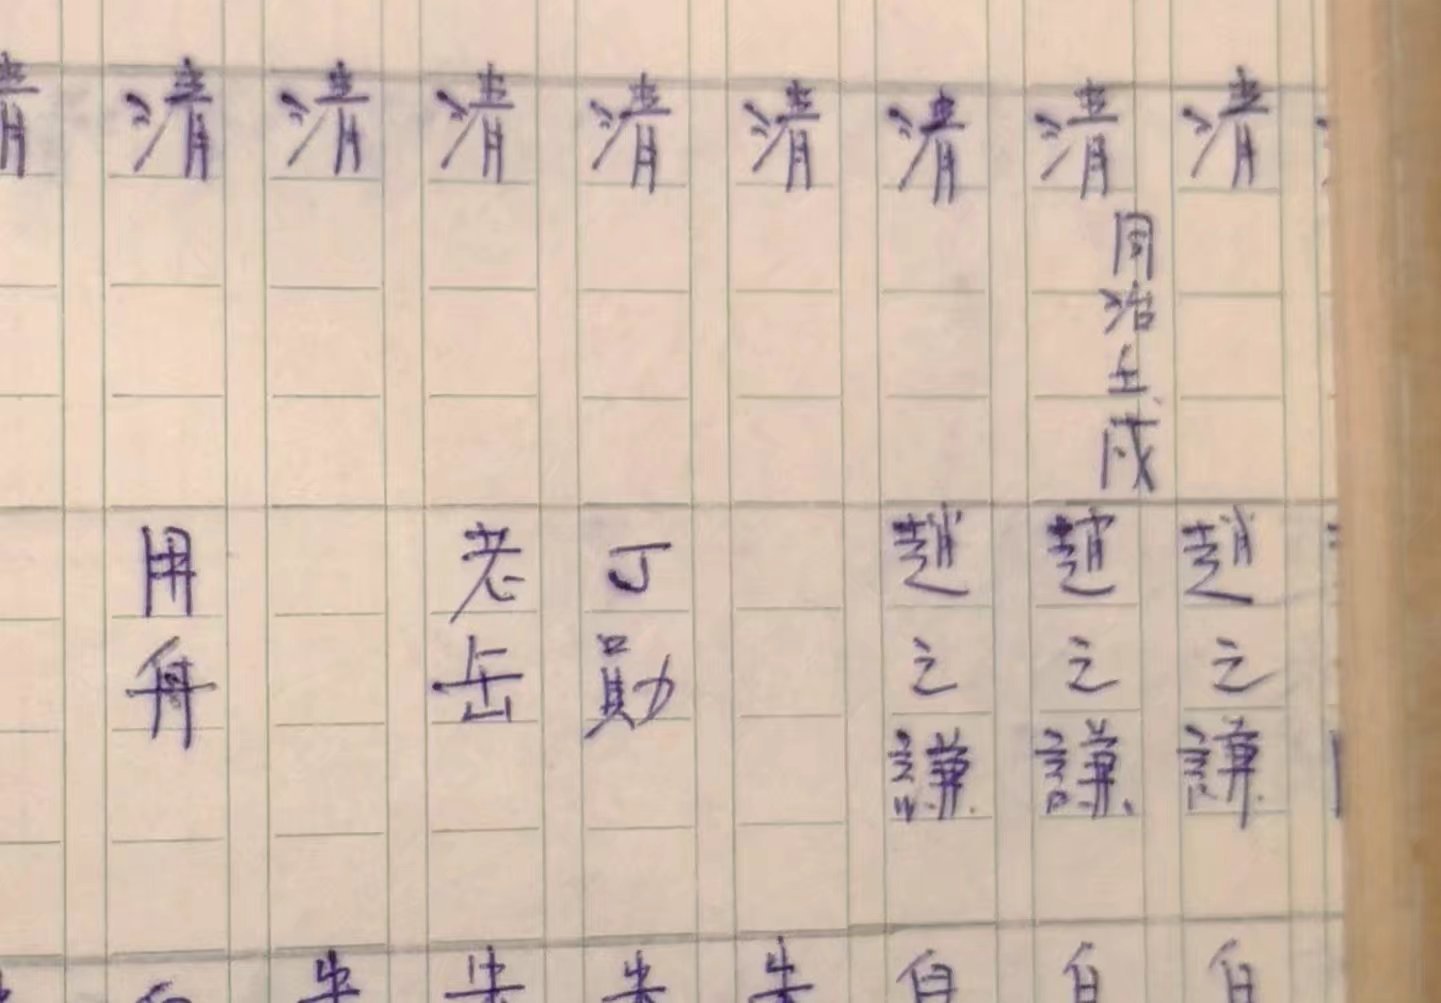 清 趙之謙 白
清 同治壬戌 趙之謙 白
清 趙之謙 白
清 朱
清 丁勛 朱
清 老岳 朱
清 朱
清 用舟
清